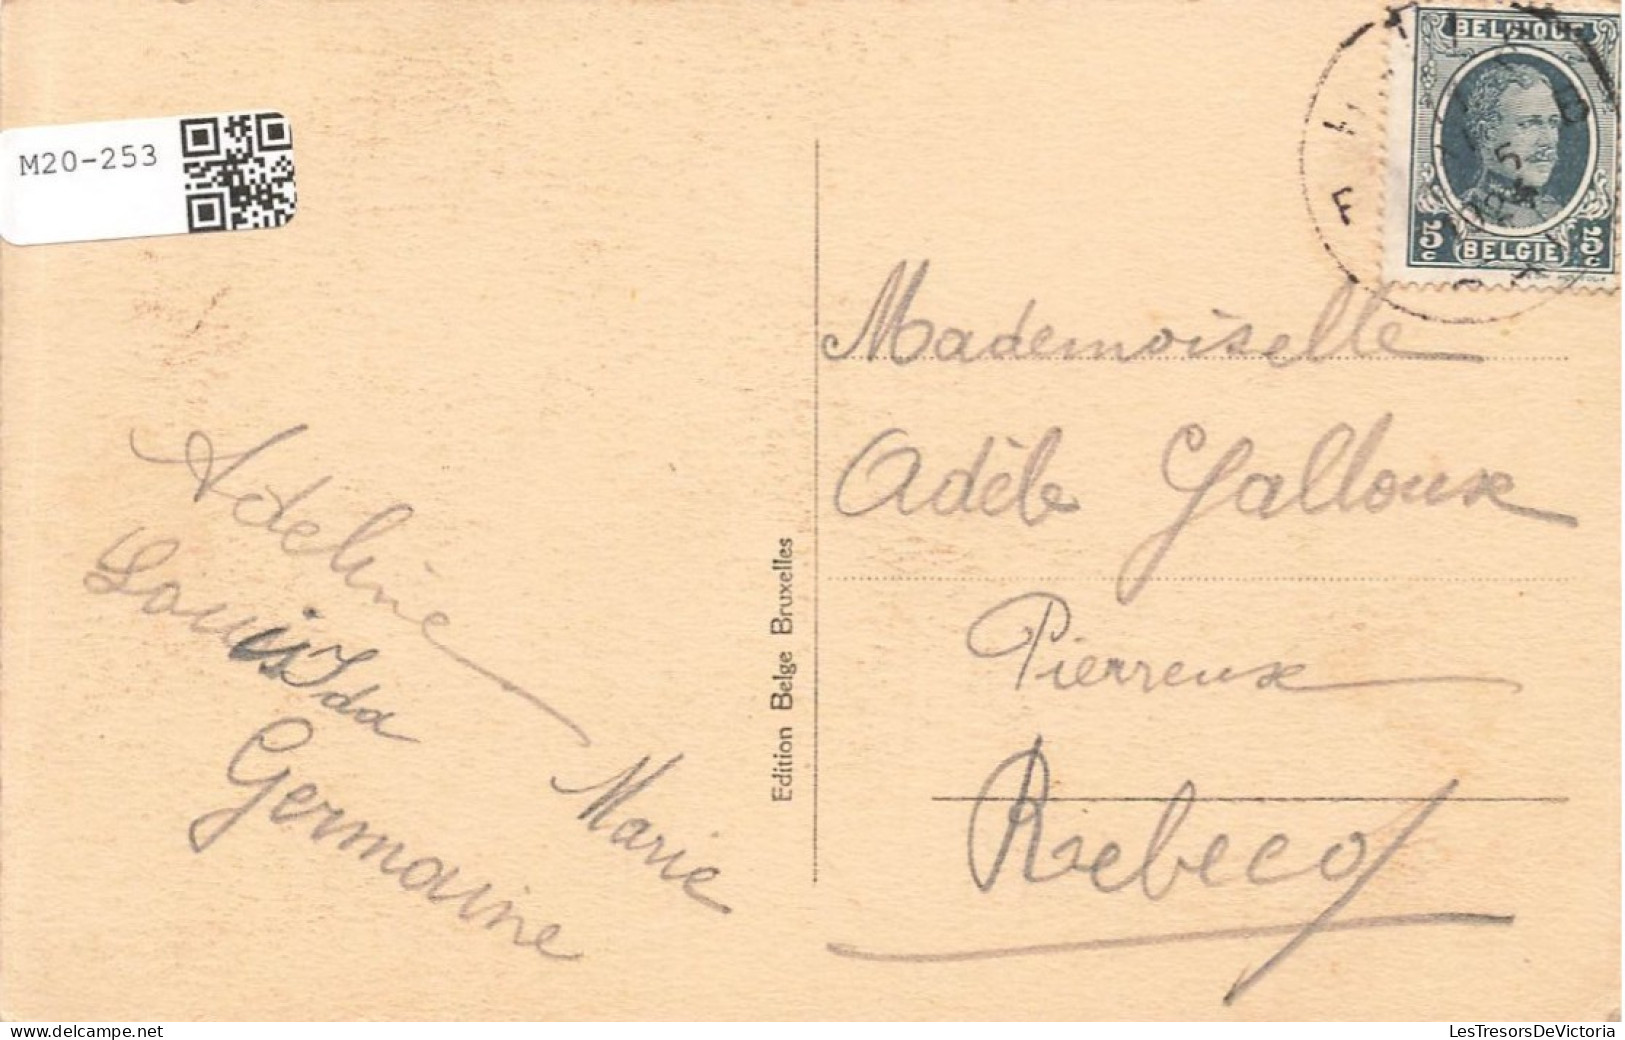 M20-253
BELGIQUE
5
1924
5c
5c
BELGIE
Mademoiselle
Adèle Galloux
Pierreux
Rebecq
Edition Belge Bruxelles
Adeline
Louis Ida
Germaine
Marie
delcampe.net
LesTresorsDeVictoria